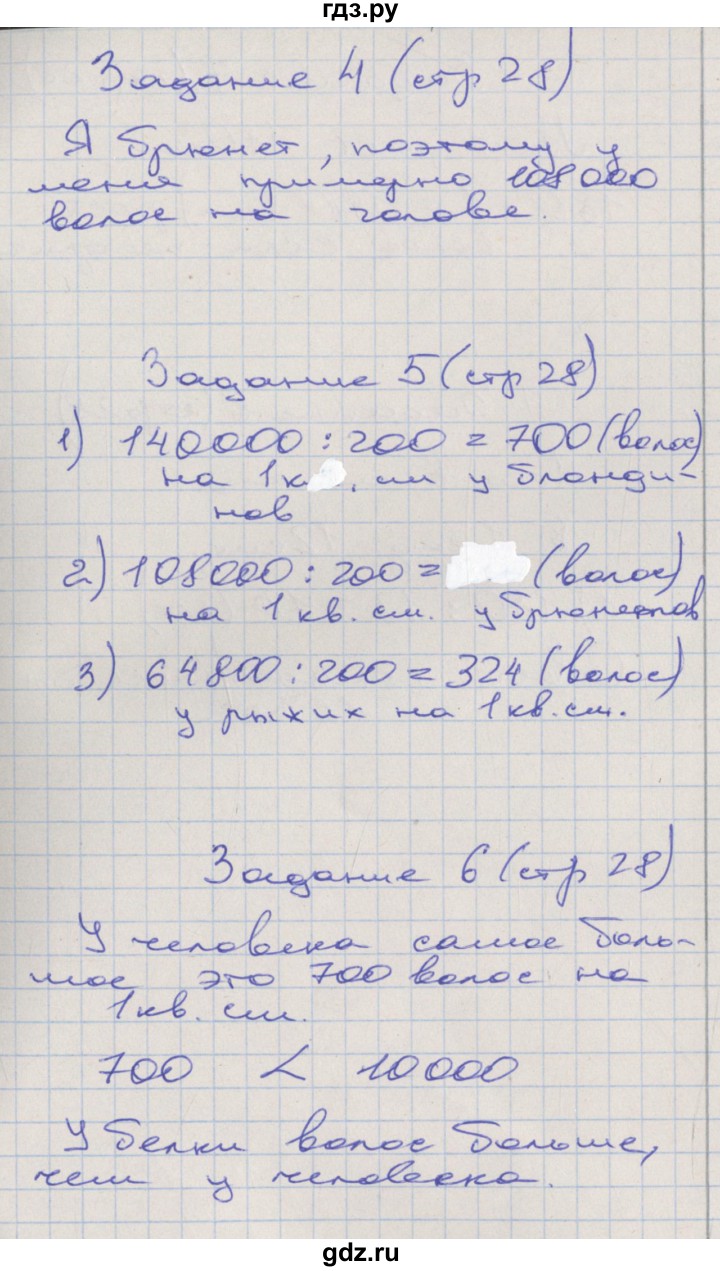 гдз.ру
Задание 4 (стр 28)
Я брюнет, поэтому у
меня примерно 108000
волос на голове.
Задание 5 (стр 28)
1) 140000 : 200 = 700 (волос)
на 1 к см у блонди-
нов
2) 108000 : 200 = (волос)
на 1 кв. см. у брюнетов
3) 64800 : 200 = 324 (волос)
у рыжих на 1 кв. см.
Задание 6 (стр 28)
У человека самое боль-
шое это 700 волос на
1 кв. см.
700 < 10000
У белки волос больше,
чем у человека.
gdz.ru